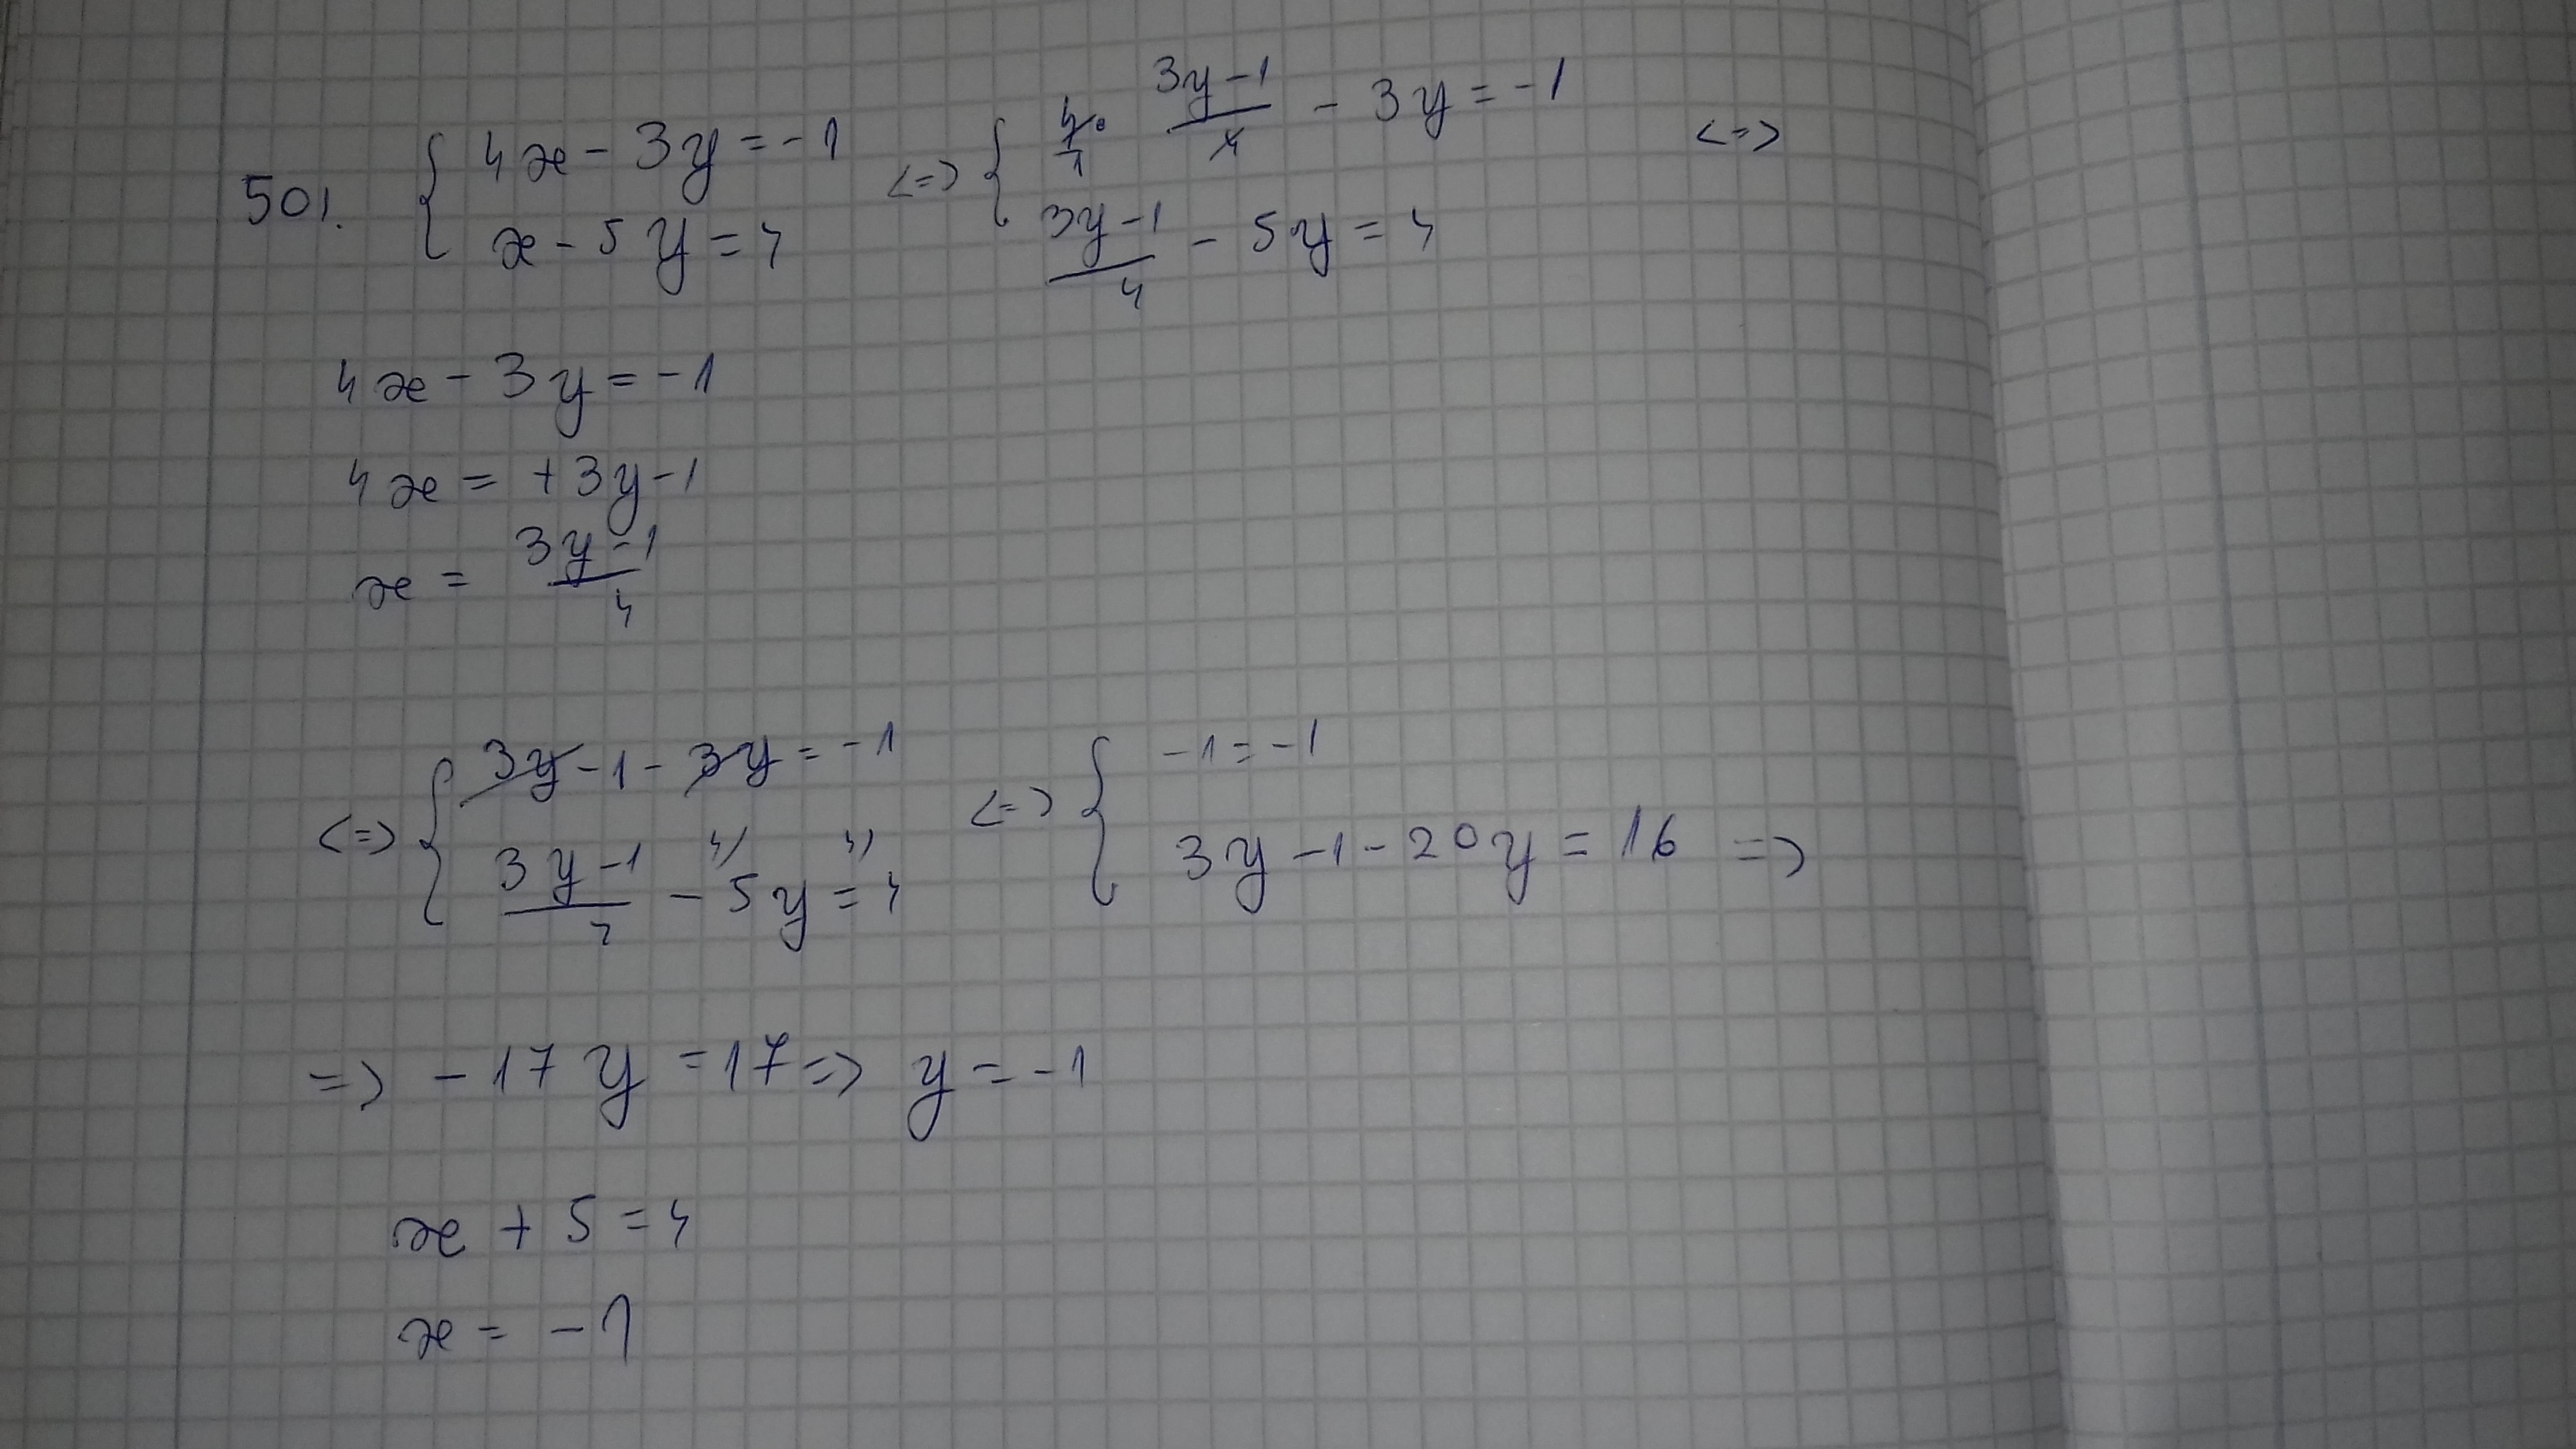 501. { 4x - 3y = -1 <=> { 4/1 · (3y-1)/4 - 3y = -1 <=>
x - 5y = 4 (3y-1)/4 - 5y = 4
4x - 3y = -1
4x = +3y-1
x = (3y-1)/4
<=> { 3y - 1 - 3y = -1 <=> { -1 = -1
(3y-1)/4 - 4) 5y = 4) 4 3y - 1 - 20y = 16 =>
=> -17y = 17 => y = -1
x + 5 = 4
x = -1